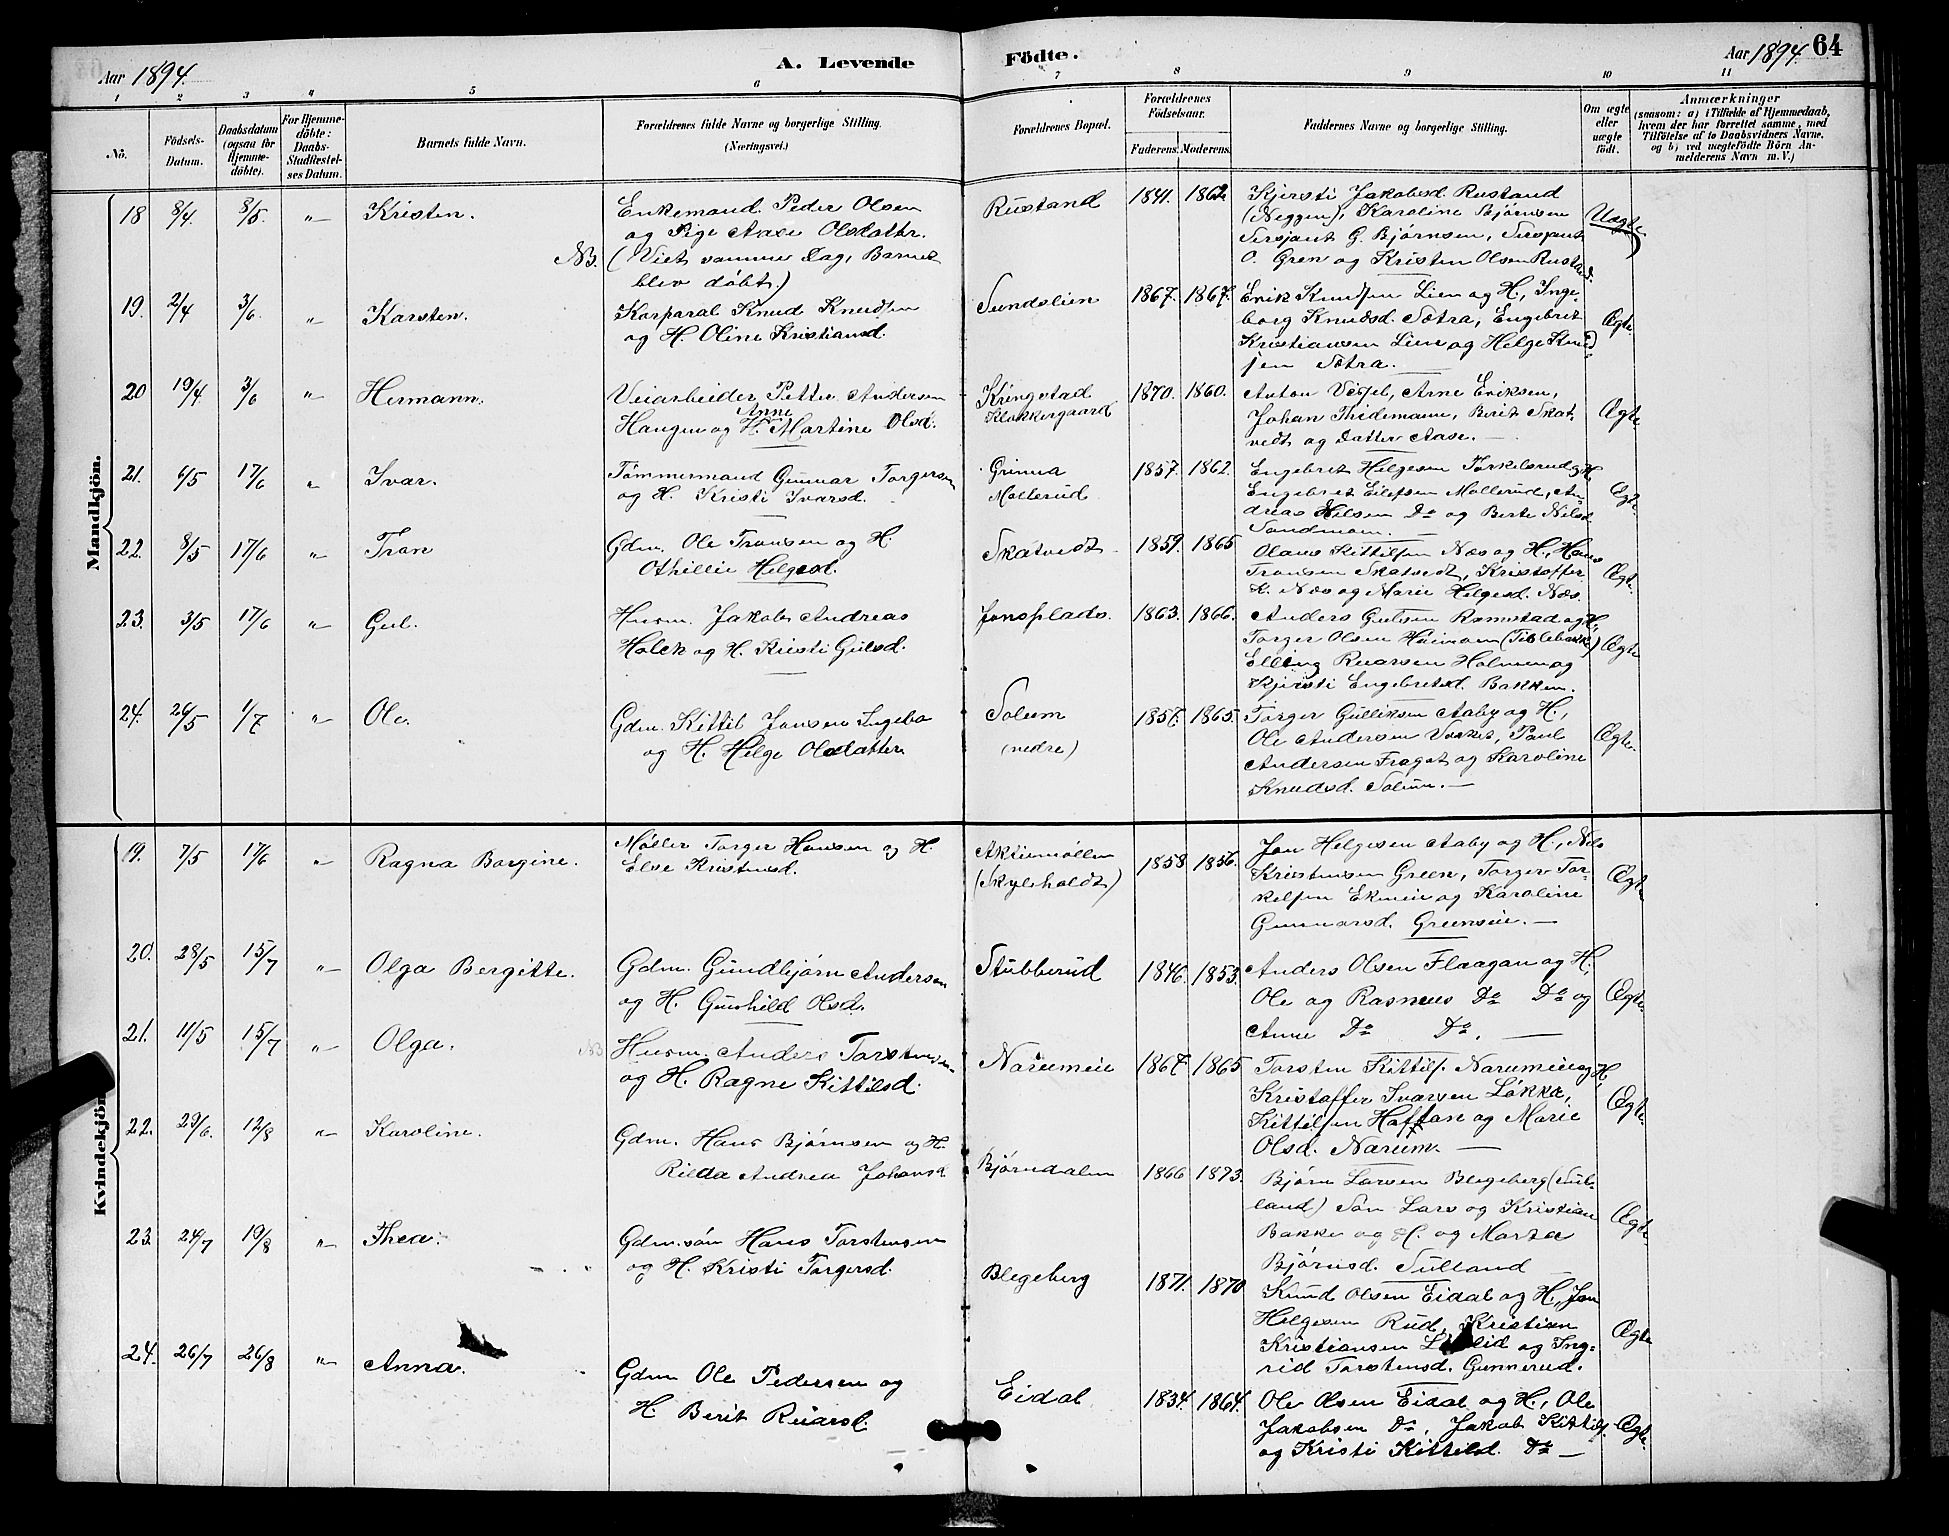 Aar 1894.
A. Levende
Födte.
Aar 1894.
64
1 2 3 4 5 6 7 8 9 10 11
No.
Födsels-Datum.
Daabsdatum (ogsaa for Hjemme-döbte).
For Hjemme-döbte: Daabs-Stadfæstel-ses Datum.
Barnets fulde Navn.
Forældrenes fulde Navne og borgerlige Stilling. (Næringsvei.)
Forældrenes Bopæl.
Forældrenes Födselsaar.
Faderens. Moderens.
Faddernes Navne og borgerlige Stilling.
Om ægte eller uægte født.
Anmærkninger
(saasom: a) i Tilfælde af Hjemmedaab, hvem der har forrettet samme, med Tilføielse af to Daabsvidners Navne, og b) ved uægtefödte Börn An-melderens Navn m. V.)
Mandkjön.
18 8/4. 8/5. " Kristen.
Enkemand Peder Olsen
og Pige Aase Olsdatter.
NB. (Viet samme Dag, Barnet
blev døbt.)
Rustand 1841. 1862.
Kjersti Jakobsd. Rustand
(Neggen), Karoline Bjørnsen
Sersjant G. Bjørnsen, Sersjant
O. Gren og Kristen Olsen Rustand.
Uægte.
19. 2/4 3/6. " Karsten.
Korporal Knud Knudsen
og H. Oline Kristiansd.
Sundslien 1867. 1867.
Erik Knudsen Lien og H., Inge-
borg Knudsd. Sætra, Engebret
Kristiansen Lien og Helge Knud-
sen Sætra. —
Ægte.
20 19/4. 3/6 " Hermann.
Veiarbeider Petter Andersen
Haugen og H. Anne Martine Olsd.
Kringstad
Klokkergaard
1870. 1860.
Anton Vessel, Arne Eriksen,
Johan Thidemann, Berit Skat-
vedt og Datter Aase. —
Ægte
21. 6/5 17/6 " Ivar.
Tømmermand Gunnar Torgersen
og H. Kristi Ivarsd.
Grinna
Mollerud.
1857. 1862.
Engebret Helgesen Torkelsrud og H.
Engebret Eilefsen Mollerud, An-
dreas Helsen Do og Berte Nilsd.
Sandmoen. —
Ægte.
22. 8/5 17/6 " Tran
Gdm. Ole Transen og H.
Othillie Helgesd.
Skatvedt 1859. 1865
Olaus Kittilsen Næs og H., Hans
Transen Skatvedt, Kristoffer
K. Næs og Marie Helgesd. Næs.
Ægte.
23. 3/5 17/6 " Gul.
Husm. Jakob Andreas
Holck og H. Kristi Gulsd.
Jonsplads. 1863. 1866.
Anders Gulsen Ramstad og H.,
Torger Olsen
Elling Ruarsen Holmen og
Kjersti Engebretsd. Bakken.
Ægte
24. 26/5 1/7 " Ole.
Gdm. Kittil Jonsen Ingebo
og H. Helge Olsdatter
Solum
(nedre)
1857. 1865.
Torger Gulliksen Aaby og H.,
Ole Andersen, Paul
Andersen Fragot og Karoline
Knudsd. Solum. —
Ægte.
Kvindekjön.
19. 7/5 17/6 " Ragna Borgine.
Møller Torger Hansen og H.
Else Kristensd.
Aktiemøllen
(Skyleholdt)
1858 1856.
Jon Helgesen Aaby og H., Nils
Kristensen Green, Torger Tor-
kelsen Ekneie og Karoline
Gunnarsd. Greenseie. —
Ægte
20. 28/5 15/7 " Olga Bergitte.
Gdm. Gundbjørn Andersen
og H. Gunhild Olsd.
Stubberud 1846. 1853.
Anders Olsen Flaagan og H.,
Ole og Rasmus Do Do og
Anne Do Do. —
Ægte.
21. 11/5 15/7 " Olga.
NB Husm. Anders Torstensen
og H. Ragne Kittilsd.
Narumeie 1867. 1865
Torsten Kittils. Narumeie og H
Kristoffer Ivarsen Løkka,
Kittilsen Haftan og Marie
Olsd. Narum. —
Ægte.
22. 29/6. 12/8 " Karoline.
Gdm. Hans Bjørnsen og H.
Rilda Andrea Johansd.
Bjørndalen 1866 1873.
Bjørn Larsen Blegeberg (Sul-
land) Søn Lars og Kristian
Bakke og H. og Marta
Bjørnsd. Sulland —
Ægte.
23. 24/7 19/8 " Thea.
Gdm.søn Hans Torstensen
og H. Kristi Torgersd.
Blegeberg 1871. 1870
Knud Olsen Eidal og H., Jon
Helgesen Rud, Kristian
Kristiansen og Ing-
rid Torstensd. Gunnerud.
Ægte
24. 26/7 26/8 " Anna.
Gdm Ole Pedersen og
H. Berit Ruarsd.
Eidal 1834. 1864.
Ole Olsen Eidal og H., Ole
Jakobsen Do, Jakob Kittils.
og Kristi Kittilsd. Do —
Ægte.